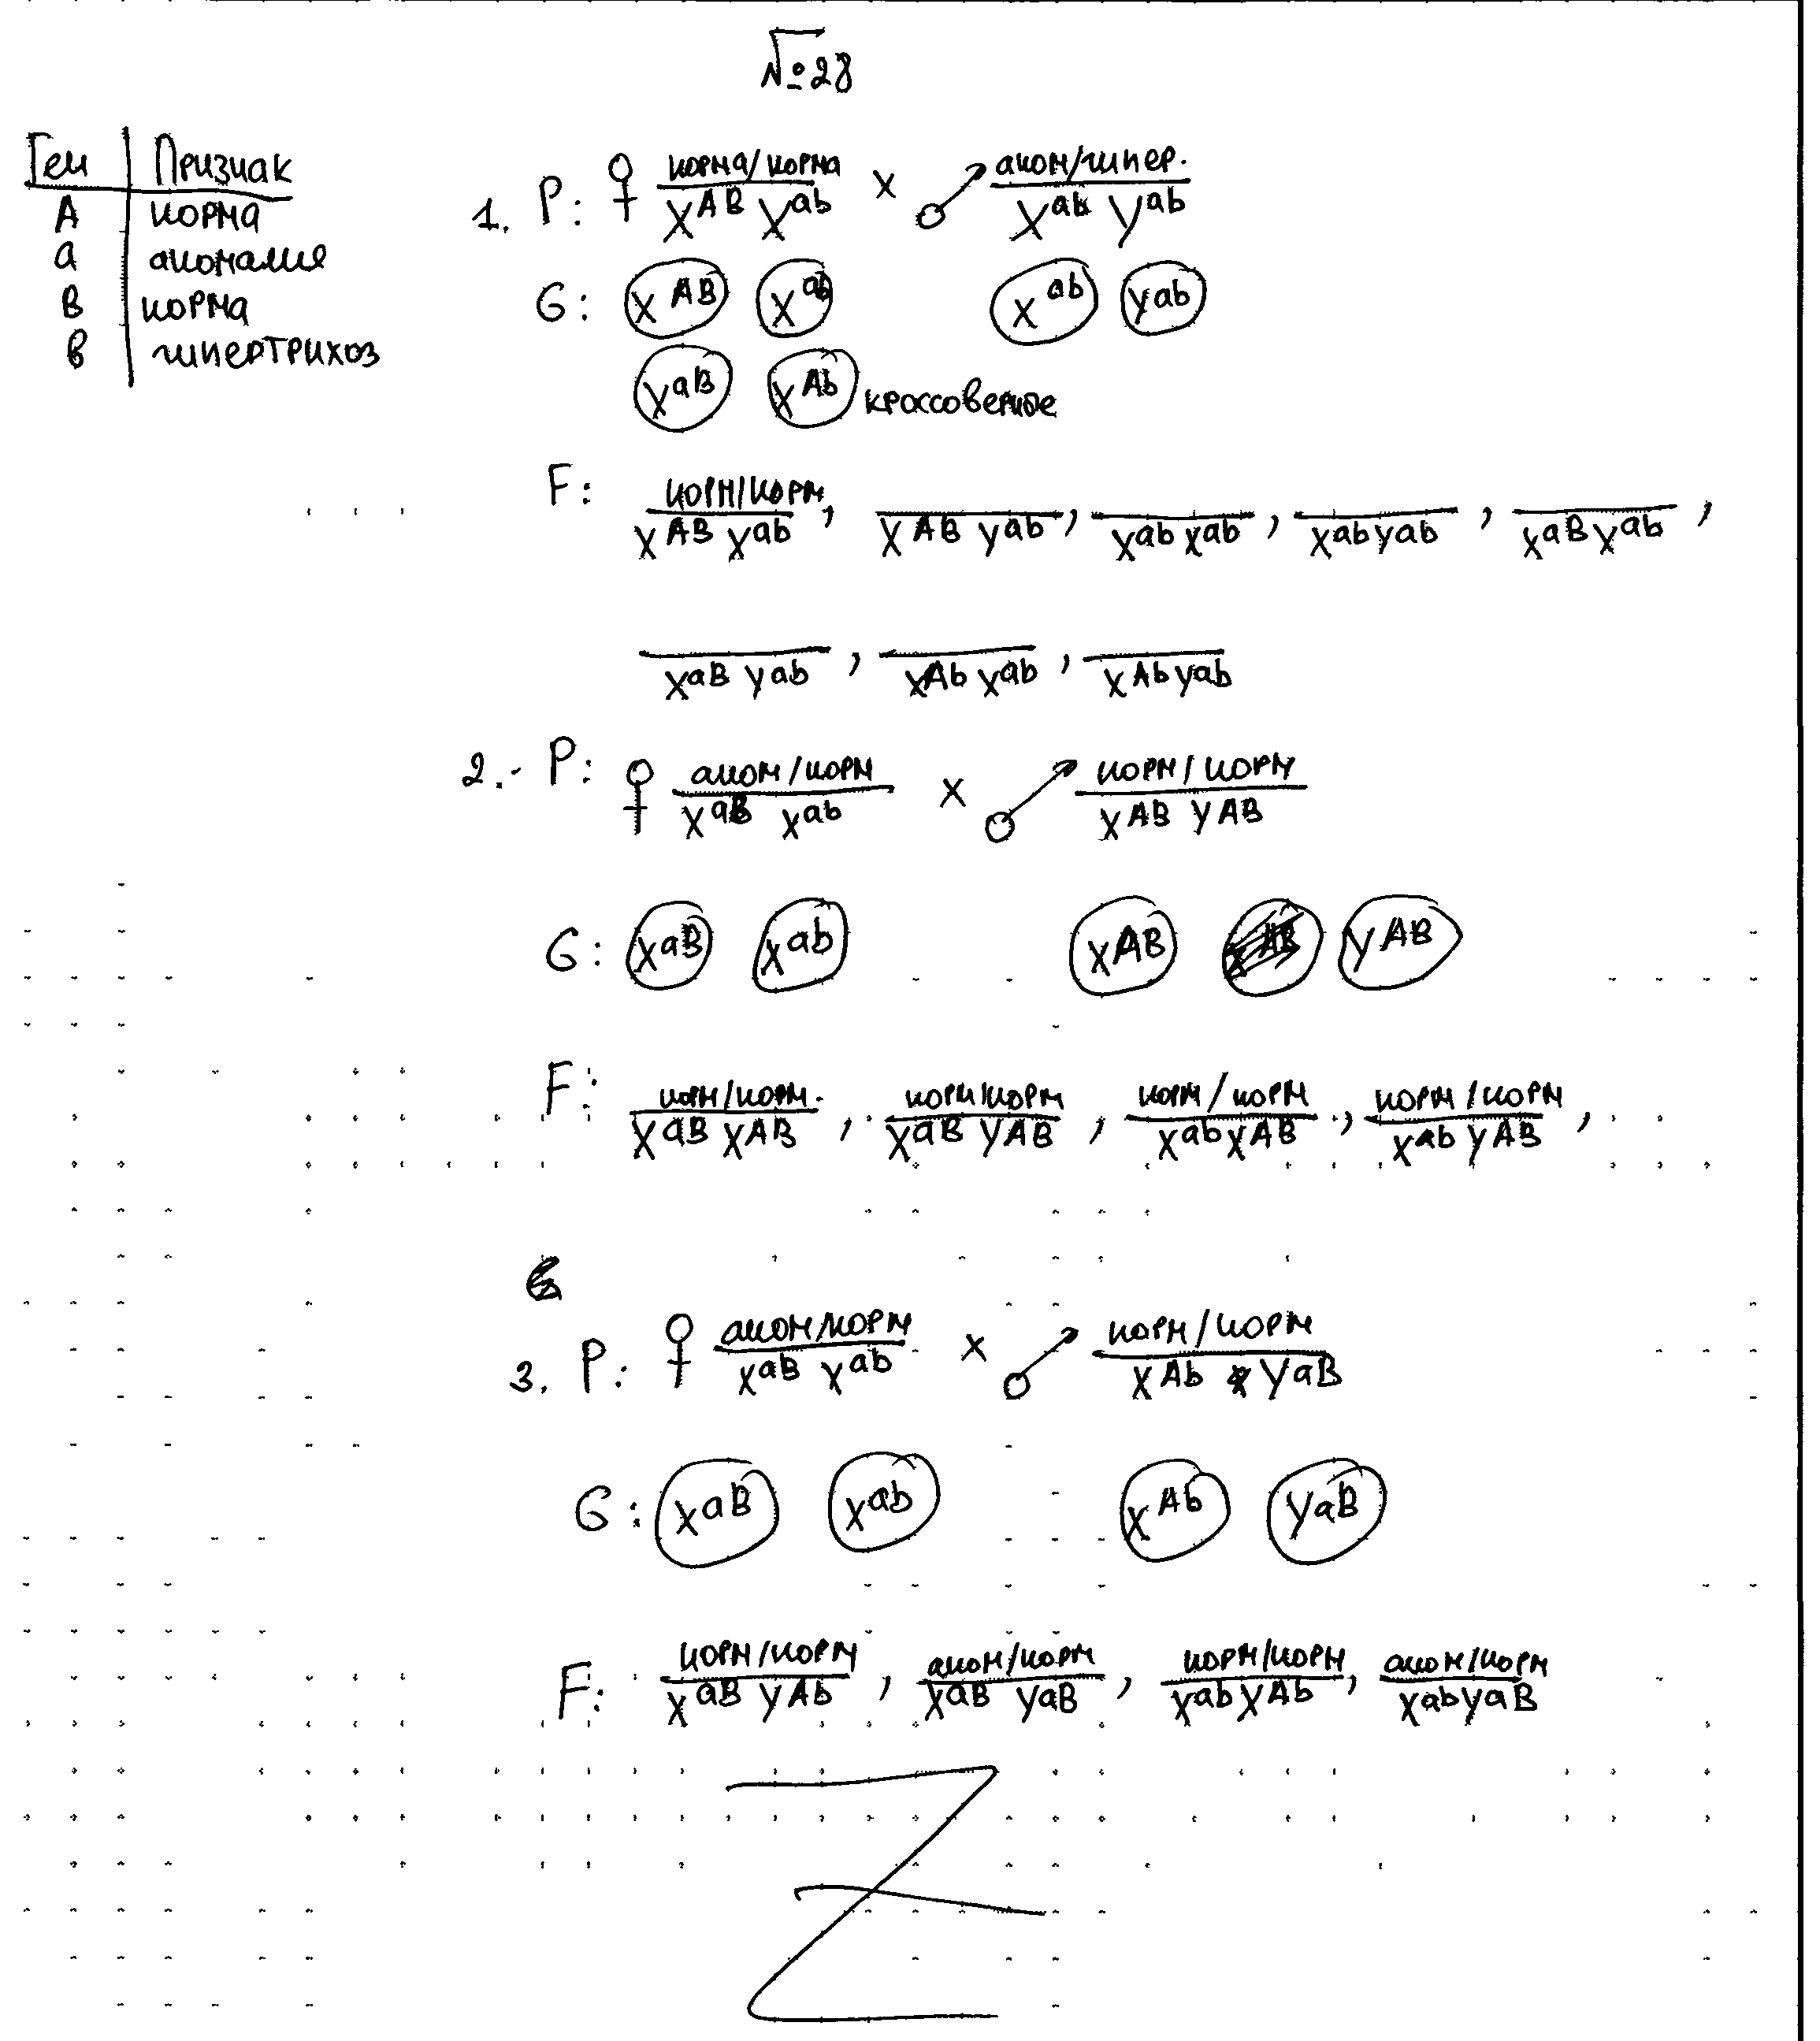 №28
Ген | Признак
A | норма
a | аномалия
B | норма
в | гипертрихоз
1. P: ♀ норма/норма X^AB X^ab × ♂ аном/гипер. X^ab Y^ab
G: X^AB X^ab X^ab Y^ab
X^aB X^Ab кроссоверные
F: норм/норм X^AB X^ab, X^AB Y^ab, X^ab X^ab, X^ab Y^ab, X^aB X^ab,
X^aB Y^ab, X^Ab X^ab, X^Ab Y^ab
2. P: ♀ аном/норм X^aB X^ab × ♂ норм/норм X^AB Y^AB
G: X^aB X^ab X^AB Y^AB
F: норм/норм. X^aB X^AB, норм/норм X^aB Y^AB, норм/норм X^ab X^AB, норм/норм X^ab Y^AB,
3. P: ♀ аном/норм X^aB X^ab × ♂ норм/норм X^Ab Y^aB
G: X^aB X^ab X^Ab Y^aB
F: норм/норм X^aB Y^Ab, аном/норм X^aB Y^aB, норм/норм X^ab X^Ab, аном/норм X^ab Y^aB